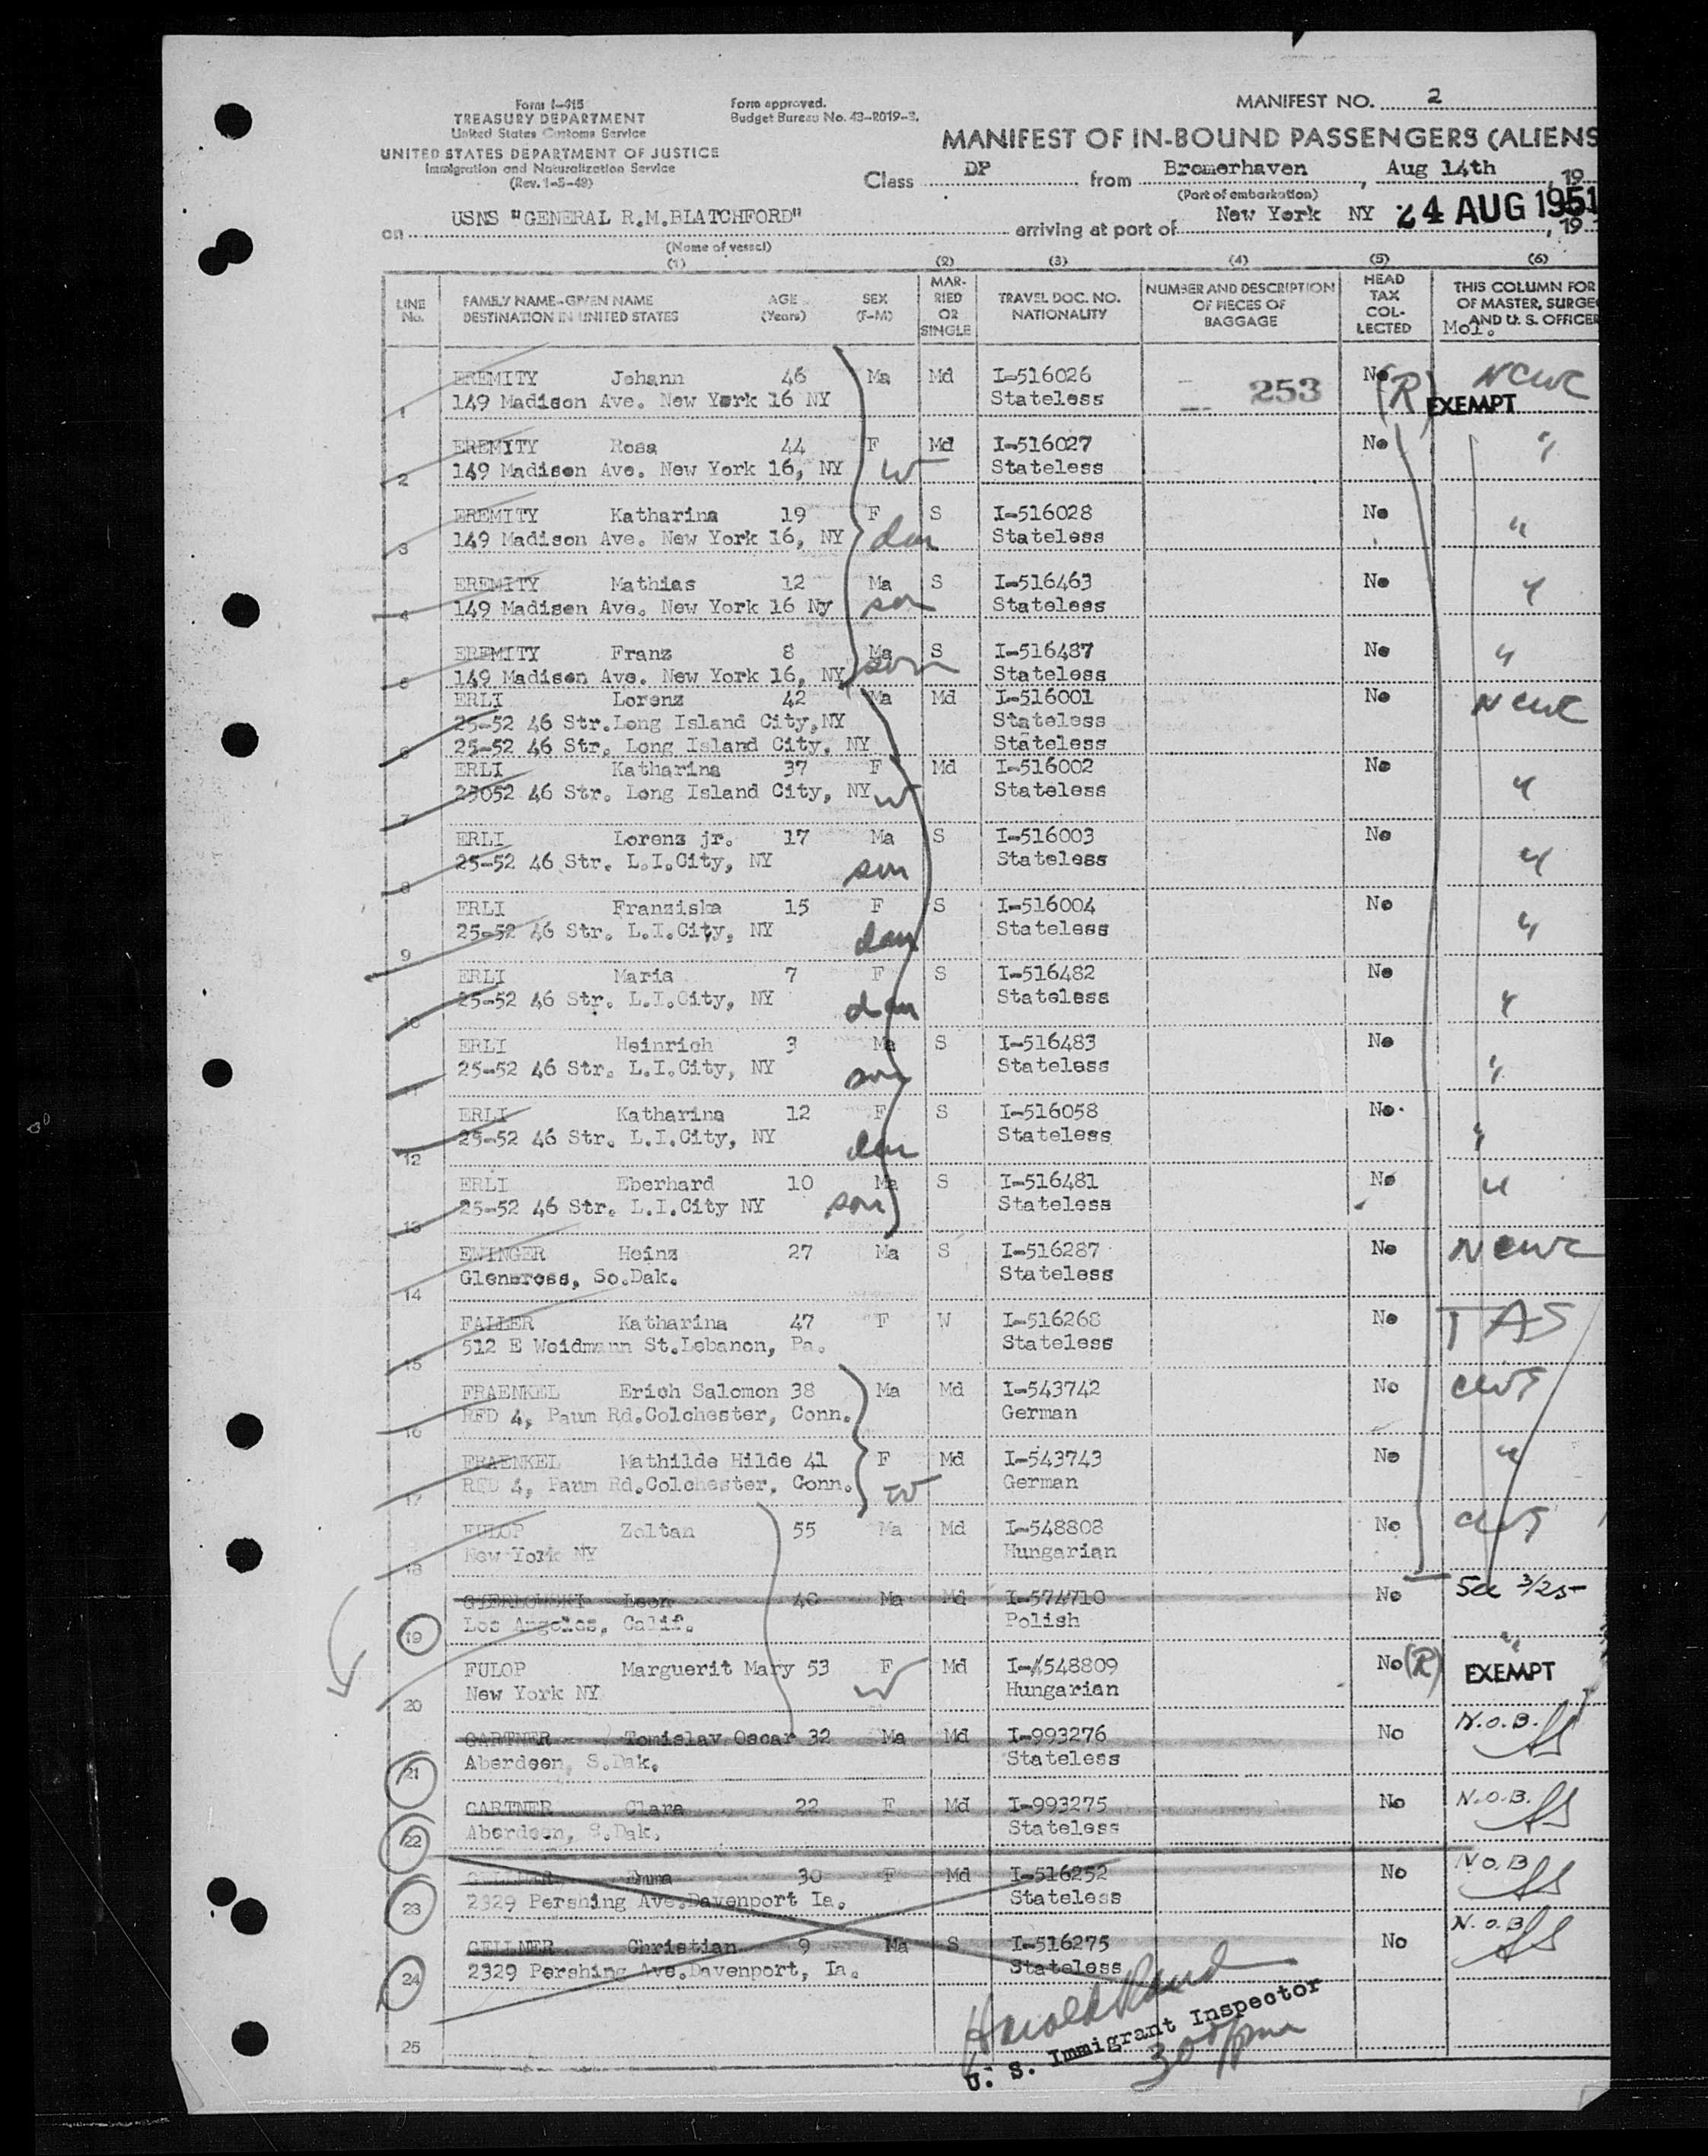 Form I-415
TREASURY DEPARTMENT
United States Customs Service
UNITED STATES DEPARTMENT OF JUSTICE
Immigration and Naturalization Service
(Rev. 1-5-49)
Form approved.
Budget Bureau No. 43-R019-3.
MANIFEST NO. 2
MANIFEST OF IN-BOUND PASSENGERS (ALIENS
Class DP from Bremerhaven, Aug 14th, 19
(Port of embarkation)
on USNS "GENERAL R.M.BLATCHFORD" arriving at port of New York NY 24 AUG 1951, 19
(Name of vessel)
(1) (2) (3) (4) (5) (6)
LINE No. FAMILY NAME-GIVEN NAME DESTINATION IN UNITED STATES AGE (Years) SEX (F-M) MARRIED OR SINGLE TRAVEL DOC. NO. NATIONALITY NUMBER AND DESCRIPTION OF PIECES OF BAGGAGE HEAD TAX COLLECTED THIS COLUMN FOR OF MASTER, SURGE AND U. S. OFFICER
1 EREMITY Johann 46 Ma Md I-516026 253 No (R) NCWC
149 Madison Ave. New York 16 NY Stateless EXEMPT
2 EREMITY Rosa 44 F Md I-516027 No "
149 Madison Ave. New York 16, NY W Stateless
3 EREMITY Katharina 19 F S I-516028 No "
149 Madison Ave. New York 16, NY dau Stateless
4 EREMITY Mathias 12 Ma S I-516463 No "
149 Madisen Ave. New York 16 Ny son Stateless
5 EREMITY Franz 8 Ma S I-516487 No "
149 Madison Ave. New York 16, NY son Stateless
6 ERLI Lorenz 42 Ma Md I-516001 No NCWC
25-52 46 Str.Long Island City,NY Stateless
25-52 46 Str. Long Island City. NY Stateless
7 ERLI Katharina 37 F Md I-516002 No "
25052 46 Str. Long Island City, NY W Stateless
8 ERLI Lorenz jr. 17 Ma S I-516003 No "
25-52 46 Str. L.I.City, NY son Stateless
9 ERLI Franziska 15 F S I-516004 No "
25-52 46 Str. L.I.City, NY dau Stateless
10 ERLI Maria 7 F S I-516482 No "
25-52 46 Str. L.I.City, NY dau Stateless
11 ERLI Heinrich 3 Ma S I-516483 No "
25-52 46 Str. L.I.City, NY son Stateless
12 ERLI Katharina 12 F S I-516058 No "
25-52 46 Str. L.I.City, NY dau Stateless
13 ERLI Eberhard 10 Ma S I-516481 No "
25-52 46 Str. L.I.City NY son Stateless
14 EWINGER Heinz 27 Ma S I-516287 No NCWC
Glencross, So.Dak. Stateless
15 FALLER Katharina 47 F W I-516268 No TAS
512 E Weidmann St.Lebanon, Pa. Stateless
16 FRAENKEL Erich Salomon 38 Ma Md I-543742 No CWS
RFD 4, Paum Rd.Colchester, Conn. German
17 FRAENKEL Mathilde Hilde 41 F Md I-543743 No "
RFD 4, Paum Rd.Colchester, Conn. W German
18 FULOP Zoltan 55 Ma Md I-548808 No CWS
New York NY Hungarian
19 GIERLOWSKI Leon 40 Ma Md I-574710 No Sec 3/25
Los Angeles, Calif. Polish
20 FULOP Marguerit Mary 53 F Md I-548809 No (R) EXEMPT
New York NY W Hungarian
21 GARTNER Tomislav Oscar 32 Ma Md I-993276 No N.O.B.
Aberdeen, S.Dak. Stateless
22 GARTNER Clara 22 F Md I-993275 No N.O.B.
Aberdeen, S.Dak. Stateless
23 GELLNER Emma 30 F Md I-516252 No N.O.B
2329 Pershing Ave.Davenport Ia. Stateless
24 GELLNER Christian 9 Ma S I-516275 No N.O.B
2329 Pershing Ave.Davenport, Ia. Stateless
25
Harold Rand
U. S. Immigrant Inspector
300 pm